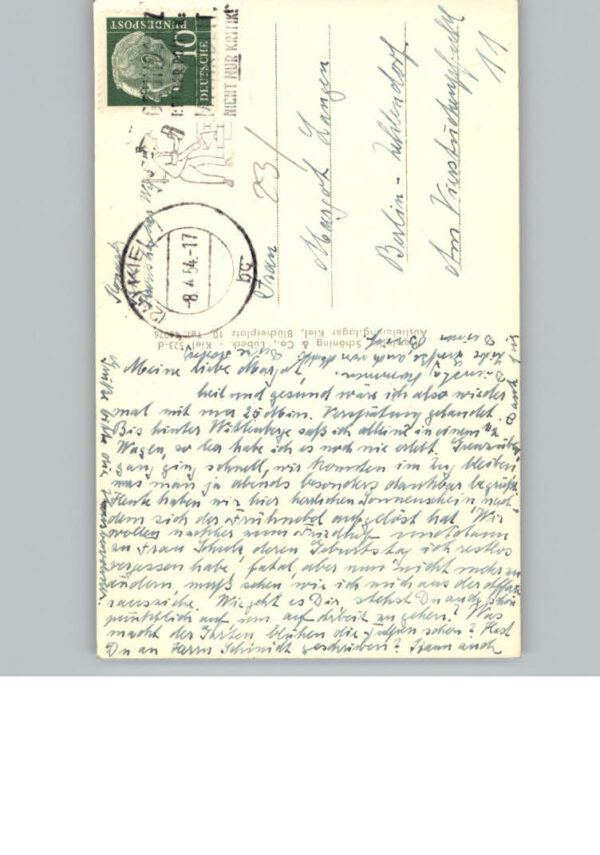 10
DEUTSCHE
BUNDESPOST
NICHT NUR
KIEL
-8.4.54.-17
23/
Frau
Margot Langen
Berlin-Zehlendorf
Am Vierstückenpfuhl
11
Schöning & Co., Lübeck
Auslieferungslager Kiel, Bücherplatz 10, Tel.
Meine liebe Margot,
heil und gesund wäre ich also wieder
mal mit nur 25 Min. Verspätung gelandet.
Bis hinter Wittenberge saß ich alleine in einem
Wagen, so leer habe ich es noch nie erlebt. Grenzüber-
gang ging schnell, wir konnten im Zug bleiben
was man ja abends besonders dankbar begrüßt.
Heute haben wir hier herrlichen Sonnenschein nach
dem sich der Frühnebel aufgelöst hat. Wir
wollen nachher zum Friedhof und dann
zu Frau Schulz deren Geburtstag ich restlos
vergessen habe, fatal aber nun nicht mehr zu
ändern, muß sehen wie ich mich aus der Affäre
rausziehe. Wie geht es Dir, stehst Du auch schön
pünktlich auf um auf Arbeit zu gehen? Was
macht der Garten blühen die Tulpen schon? Hast
Du an Herrn Schmidt geschrieben? Kann auch
Grüße bitte die